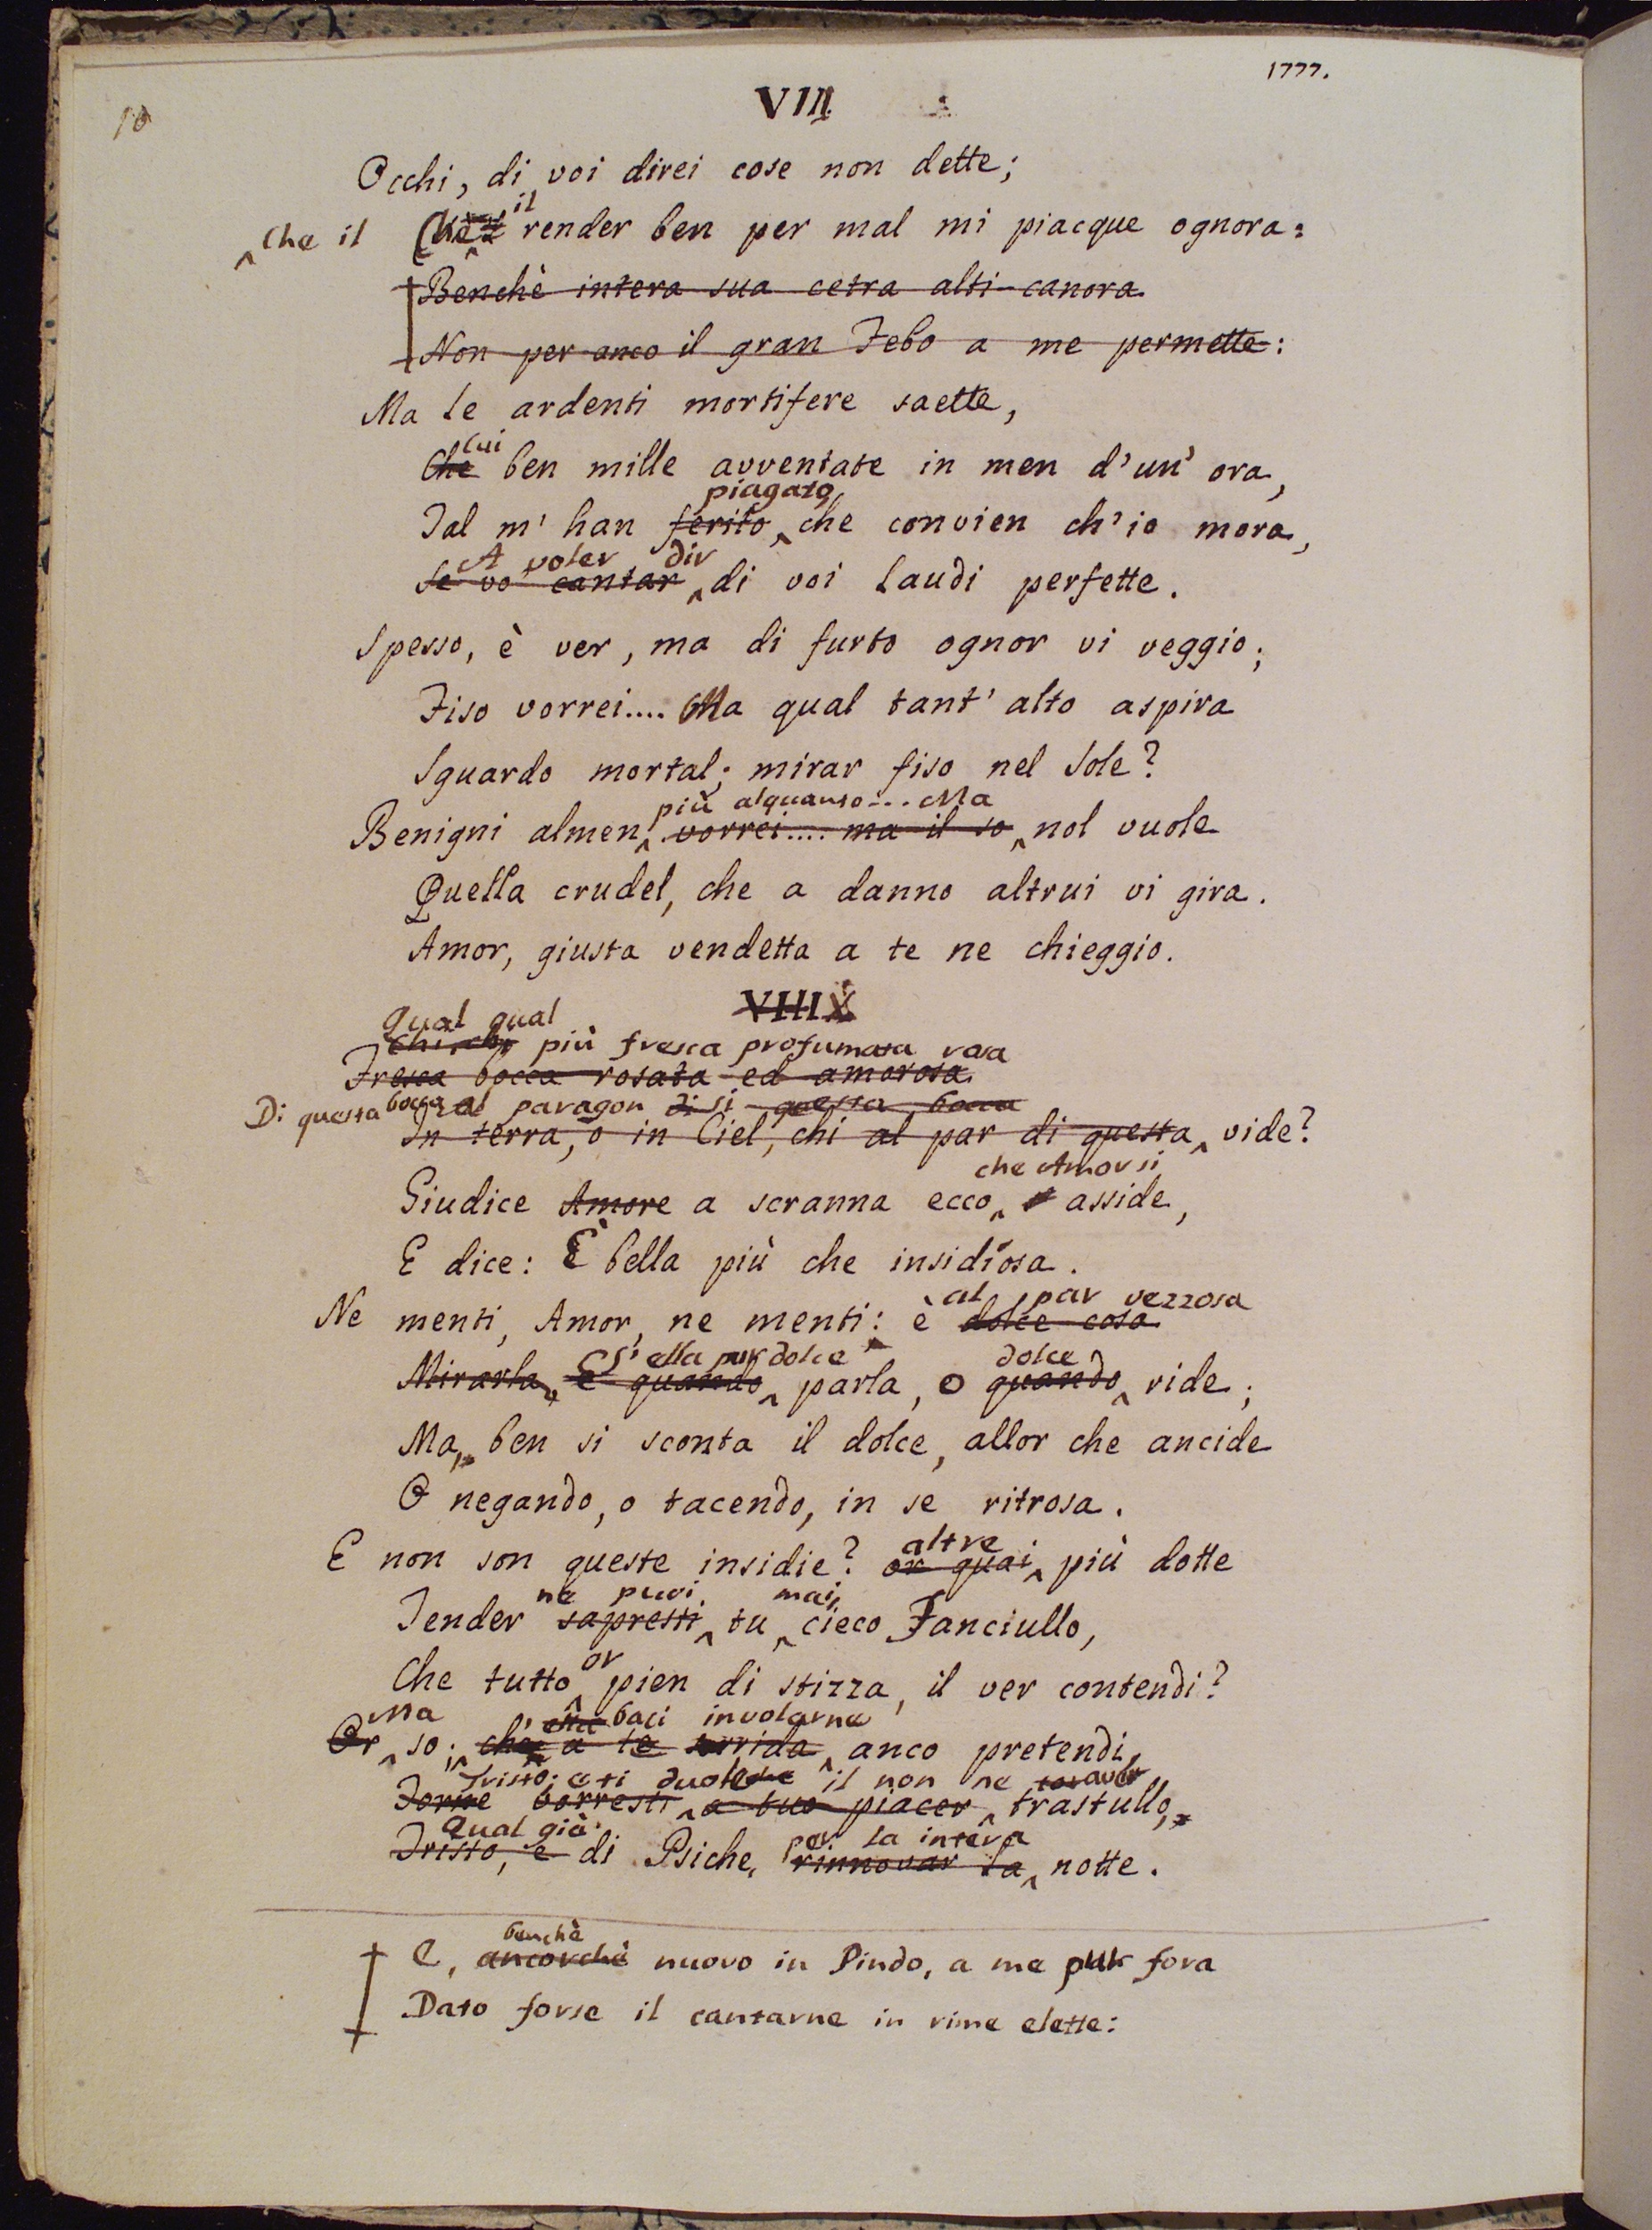 1777.
10
VIII.
Occhi, di voi direi cose non dette;
^Che il Che il render ben per mal mi piacque ognora:
Benchè intera sua cetra alti-canora
Non per anco il gran Febo a me permette:
Ma le ardenti mortifere saette,
Cui
Che ben mille avventate in men d'un'ora,
piagato,
Tal m'han ferito, che convien ch'io mora,
A voler dir
Se vo' cantar di voi laudi perfette.
Spesso, è ver, ma di furto ognor vi veggio;
Fiso vorrei.... Ma qual tant'alto aspira
Sguardo mortal; mirar fiso nel Sole?
più alquanto... Ma
Benigni almen vorrei.... ma il so, nol vuole
Quella crudel, che a danno altrui vi gira.
Amor, giusta vendetta a te ne chieggio.
VIIII X
Qual qual
più fresca profumata rosa
Fresca bocca rosata ed amorosa
Di questa bocca al paragon si questa bocca
In terra, o in Ciel, chi al par di questa vide?
che Amor si
Giudice Amore a scranna ecco asside,
E dice: È bella più che insidiosa.
al par vezzosa
Ne menti, Amor, ne menti: è dolce cosa
S'ella pur dolce dolce
Mirarla, e quando parla, o quando ride;
Ma, ben si sconta il dolce, allor che ancide
O negando, o tacendo, in se ritrosa.
altre
E non son queste insidie? or quai più dotte
ne puoi mai,
Tender sapresti tu cieco Fanciullo,
or
Che tutto pien di stizza, il ver contendi?
Ma baci involarne
Or so; che a te sorrida anco pretendi,
Tristo; e ti duole il non ne aver
Forne vorresti a tuo piacer trastullo,
Qual già per la intera
Tristo, e di Psiche, rinnovar la notte.
benchè
E, ancorchè nuovo in Pindo, a me pur fora
Dato forse il cantarne in rime elette: